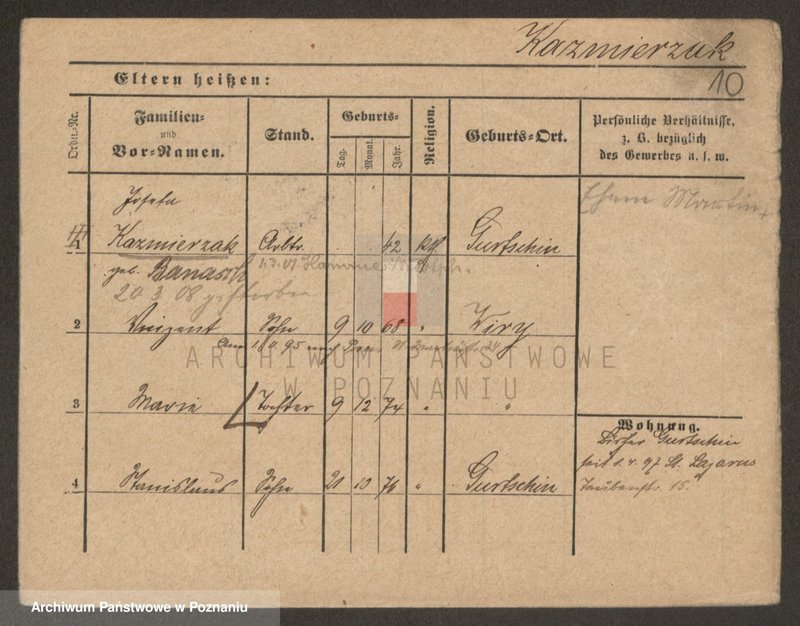 Kazmierzak
10
Eltern heißen:
Ordn.-Nr.
Familien- und Vor-Namen.
Stand.
Geburts-
Tag.
Monat.
Jahr.
Religion.
Geburts-Ort.
Persönliche Verhältnisse,
z. B. bezüglich
des Gewerbes u. s. w.
Josefa
Ehem Martin +
1 Kazmierzak Arbtr. 42 kath Gurtschin
geb. Banasch
20 3 08 gestorben
2 Vinzent Sohn 9 10 68 " Wiry
ARCHIWUM PAŃSTWOWE
W POZNANIU
3 Marie Tochter 9 12 74 " "
Wohnung.
Gurtschin
seit 1. 4. 97 St. Lazarus
Taubenstr. 15.
4 Stanislaus Sohn 21 10 76 " Gurtschin
Archiwum Państwowe w Poznaniu